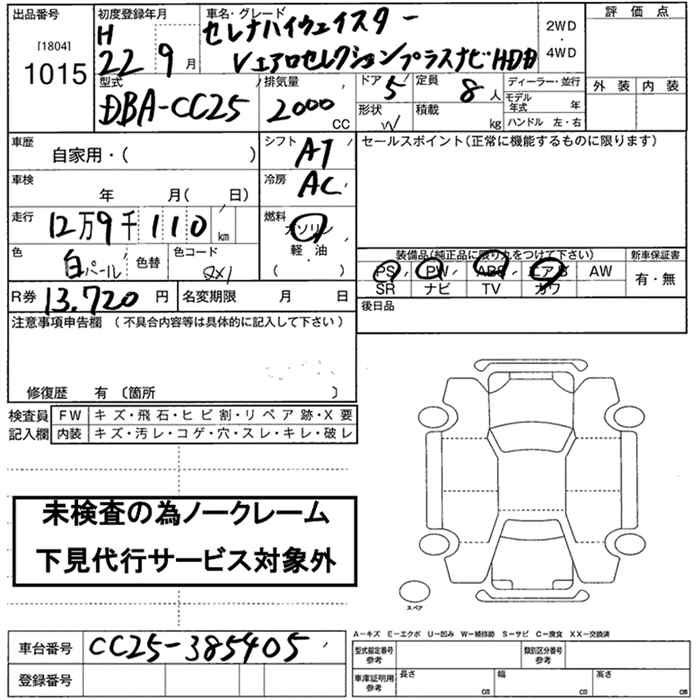 出品番号 初度登録年月 車名・グレード 評価点
[1804] H セレナハイウェイスター 2WD
1015 22 9月 Vエアロセレクションプラスナビ HDD ・ 4WD
型式 排気量 ドア 定員 ディーラー・並行 外装 内装
DBA-CC25 2000 CC 5 8人 モデル年式 年
形状 W 積載 kg ハンドル 左・右
車歴 シフト セールスポイント(正常に機能するものに限ります)
自家用・( ) AT
車検 冷房
年 月( 日) AC
走行 燃料
12万9千110 km ガソリン
色 色替 色コード 軽油 装備品(純正品に限り丸をつけて下さい) 新車保証書
白パール QX1 ( ) PS PW ABS エアB AW 有・無
R券 13,720円 名変期限 月 日 SR ナビ TV カワ
注意事項申告欄 (不具合内容等は具体的に記入して下さい) 後日品
修復歴 有 〔箇所 〕
検査員 FW キズ・飛石・ヒビ割・リペア跡・X要
記入欄 内装 キズ・汚レ・コゲ・穴・スレ・キレ・破レ
未検査の為ノークレーム
下見代行サービス対象外
スペア
A-キズ E-エクボ U-凹み W-補修跡 S-サビ C-腐食 XX-交換済
車台番号 CC25-385405 型式指定番号 参考 類別区分番号 参考
登録番号 車庫証明用 参考 長さ cm 幅 cm 高さ cm